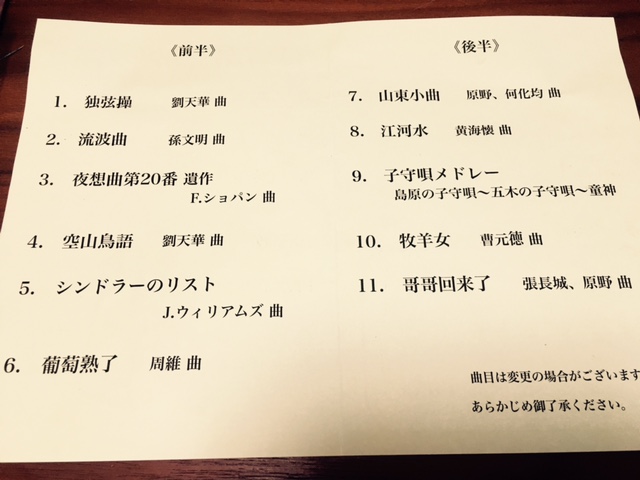 《前半》
1. 独弦操 劉天華 曲
2. 流波曲 孫文明 曲
3. 夜想曲第20番 遺作
F.ショパン 曲
4. 空山鳥語 劉天華 曲
5. シンドラーのリスト
J.ウィリアムズ 曲
6. 葡萄熟了 周維 曲
《後半》
7. 山東小曲 原野、何化均 曲
8. 江河水 黄海懐 曲
9. 子守唄メドレー
島原の子守唄〜五木の子守唄〜童神
10. 牧羊女 曹元德 曲
11. 哥哥回来了 張長城、原野 曲
曲目は変更の場合がございます
あらかじめ御了承ください。